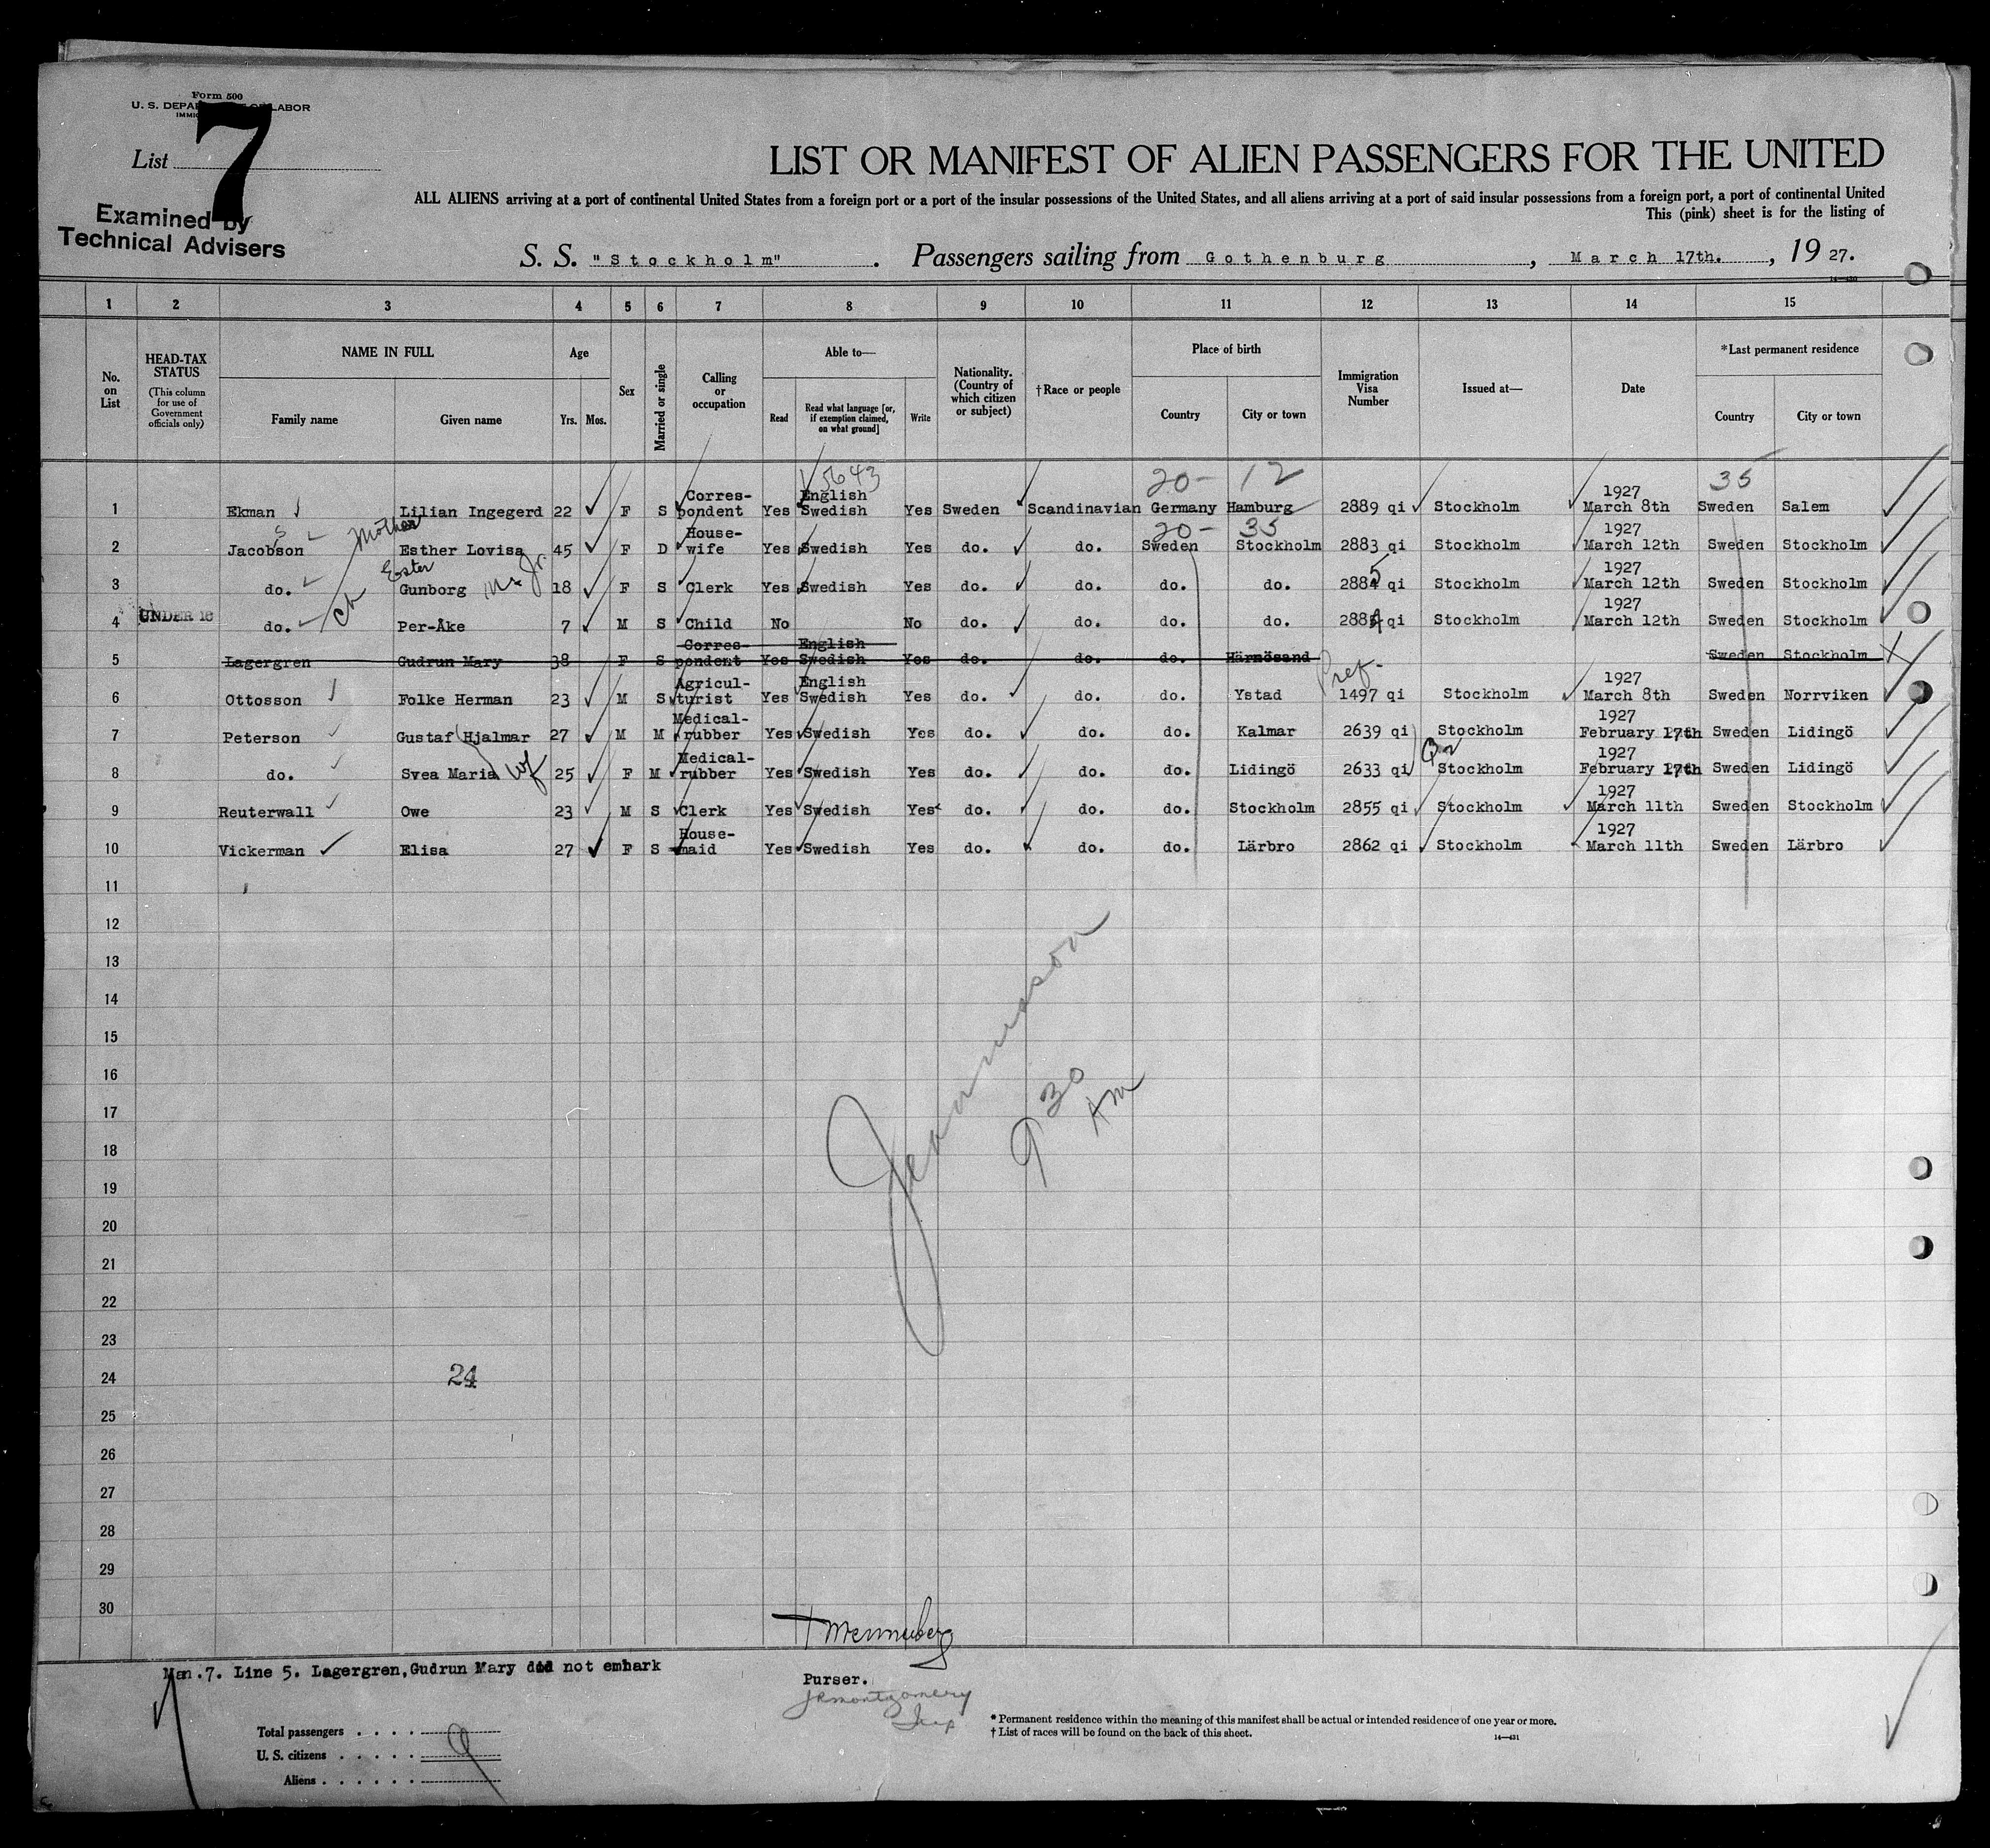 Form 500
U. S. DEPA LABOR
IMMI
List 7
Examined by
Technical Advisers
LIST OR MANIFEST OF ALIEN PASSENGERS FOR THE UNITED
ALL ALIENS arriving at a port of continental United States from a foreign port or a port of the insular possessions of the United States, and all aliens arriving at a port of said insular possessions from a foreign port, a port of continental United
This (pink) sheet is for the listing of
S. S. "Stockholm". Passengers sailing from Gothenburg, March 17th., 1927.
14—430
1 2 3 4 5 6 7 8 9 10 11 12 13 14 15
No. on List
HEAD-TAX STATUS
(This column for use of Government officials only)
NAME IN FULL
Family name Given name
Age
Yrs. Mos.
Sex
Married or single
Calling or occupation
Able to—
Read Read what language [or, if exemption claimed, on what ground] Write
Nationality. (Country of which citizen or subject)
†Race or people
Place of birth
Country City or town
Immigration Visa Number
Issued at—
Date
*Last permanent residence
Country City or town
5643 20- 12 35
1 Ekman Lilian Ingegerd 22 F S Corres-pondent Yes English Swedish Yes Sweden Scandinavian Germany Hamburg 2889 qi Stockholm 1927 March 8th Sweden Salem
s Mother 20- 35
2 Jacobson Esther Lovisa 45 F D House-wife Yes Swedish Yes do. do. Sweden Stockholm 2883 qi Stockholm 1927 March 12th Sweden Stockholm
Ester
3 do. Gunborg Jr. 18 F S Clerk Yes Swedish Yes do. do. do. do. 2885 qi Stockholm 1927 March 12th Sweden Stockholm
4 UNDER 16 do. ch Per-Åke 7 M S Child No No do. do. do. do. 2884 qi Stockholm 1927 March 12th Sweden Stockholm
5 Lagergren Gudrun Mary 38 F S Corres-pondent Yes English Swedish Yes do. do. do. Härnösand Sweden Stockholm
Pref-
6 Ottosson Folke Herman 23 M S Agricul-turist Yes English Swedish Yes do. do. do. Ystad 1497 qi Stockholm 1927 March 8th Sweden Norrviken
7 Peterson Gustaf Hjalmar 27 M M Medical-rubber Yes Swedish Yes do. do. do. Kalmar 2639 qi Stockholm 1927 February 17th Sweden Lidingö
8 do. Svea Maria wf 25 F M Medical-rubber Yes Swedish Yes do. do. do. Lidingö 2633 qi Stockholm 1927 February 17th Sweden Lidingö
9 Reuterwall Owe 23 M S Clerk Yes Swedish Yes do. do. do. Stockholm 2855 qi Stockholm 1927 March 11th Sweden Stockholm
10 Vickerman Elisa 27 F S House-maid Yes Swedish Yes do. do. do. Lärbro 2862 qi Stockholm 1927 March 11th Sweden Lärbro
11
12
13
14
15
16
9 30 AM
17
18
19
20
21
22
23
24 24
25
26
27
28
29
30
Man.7. Line 5. Lagergren,Gudrun Mary did not embark
Purser.
JRMontgomery
Total passengers . . . . 9
U. S. citizens . . . . .
Aliens . . . . . .
* Permanent residence within the meaning of this manifest shall be actual or intended residence of one year or more.
† List of races will be found on the back of this sheet.
14—431